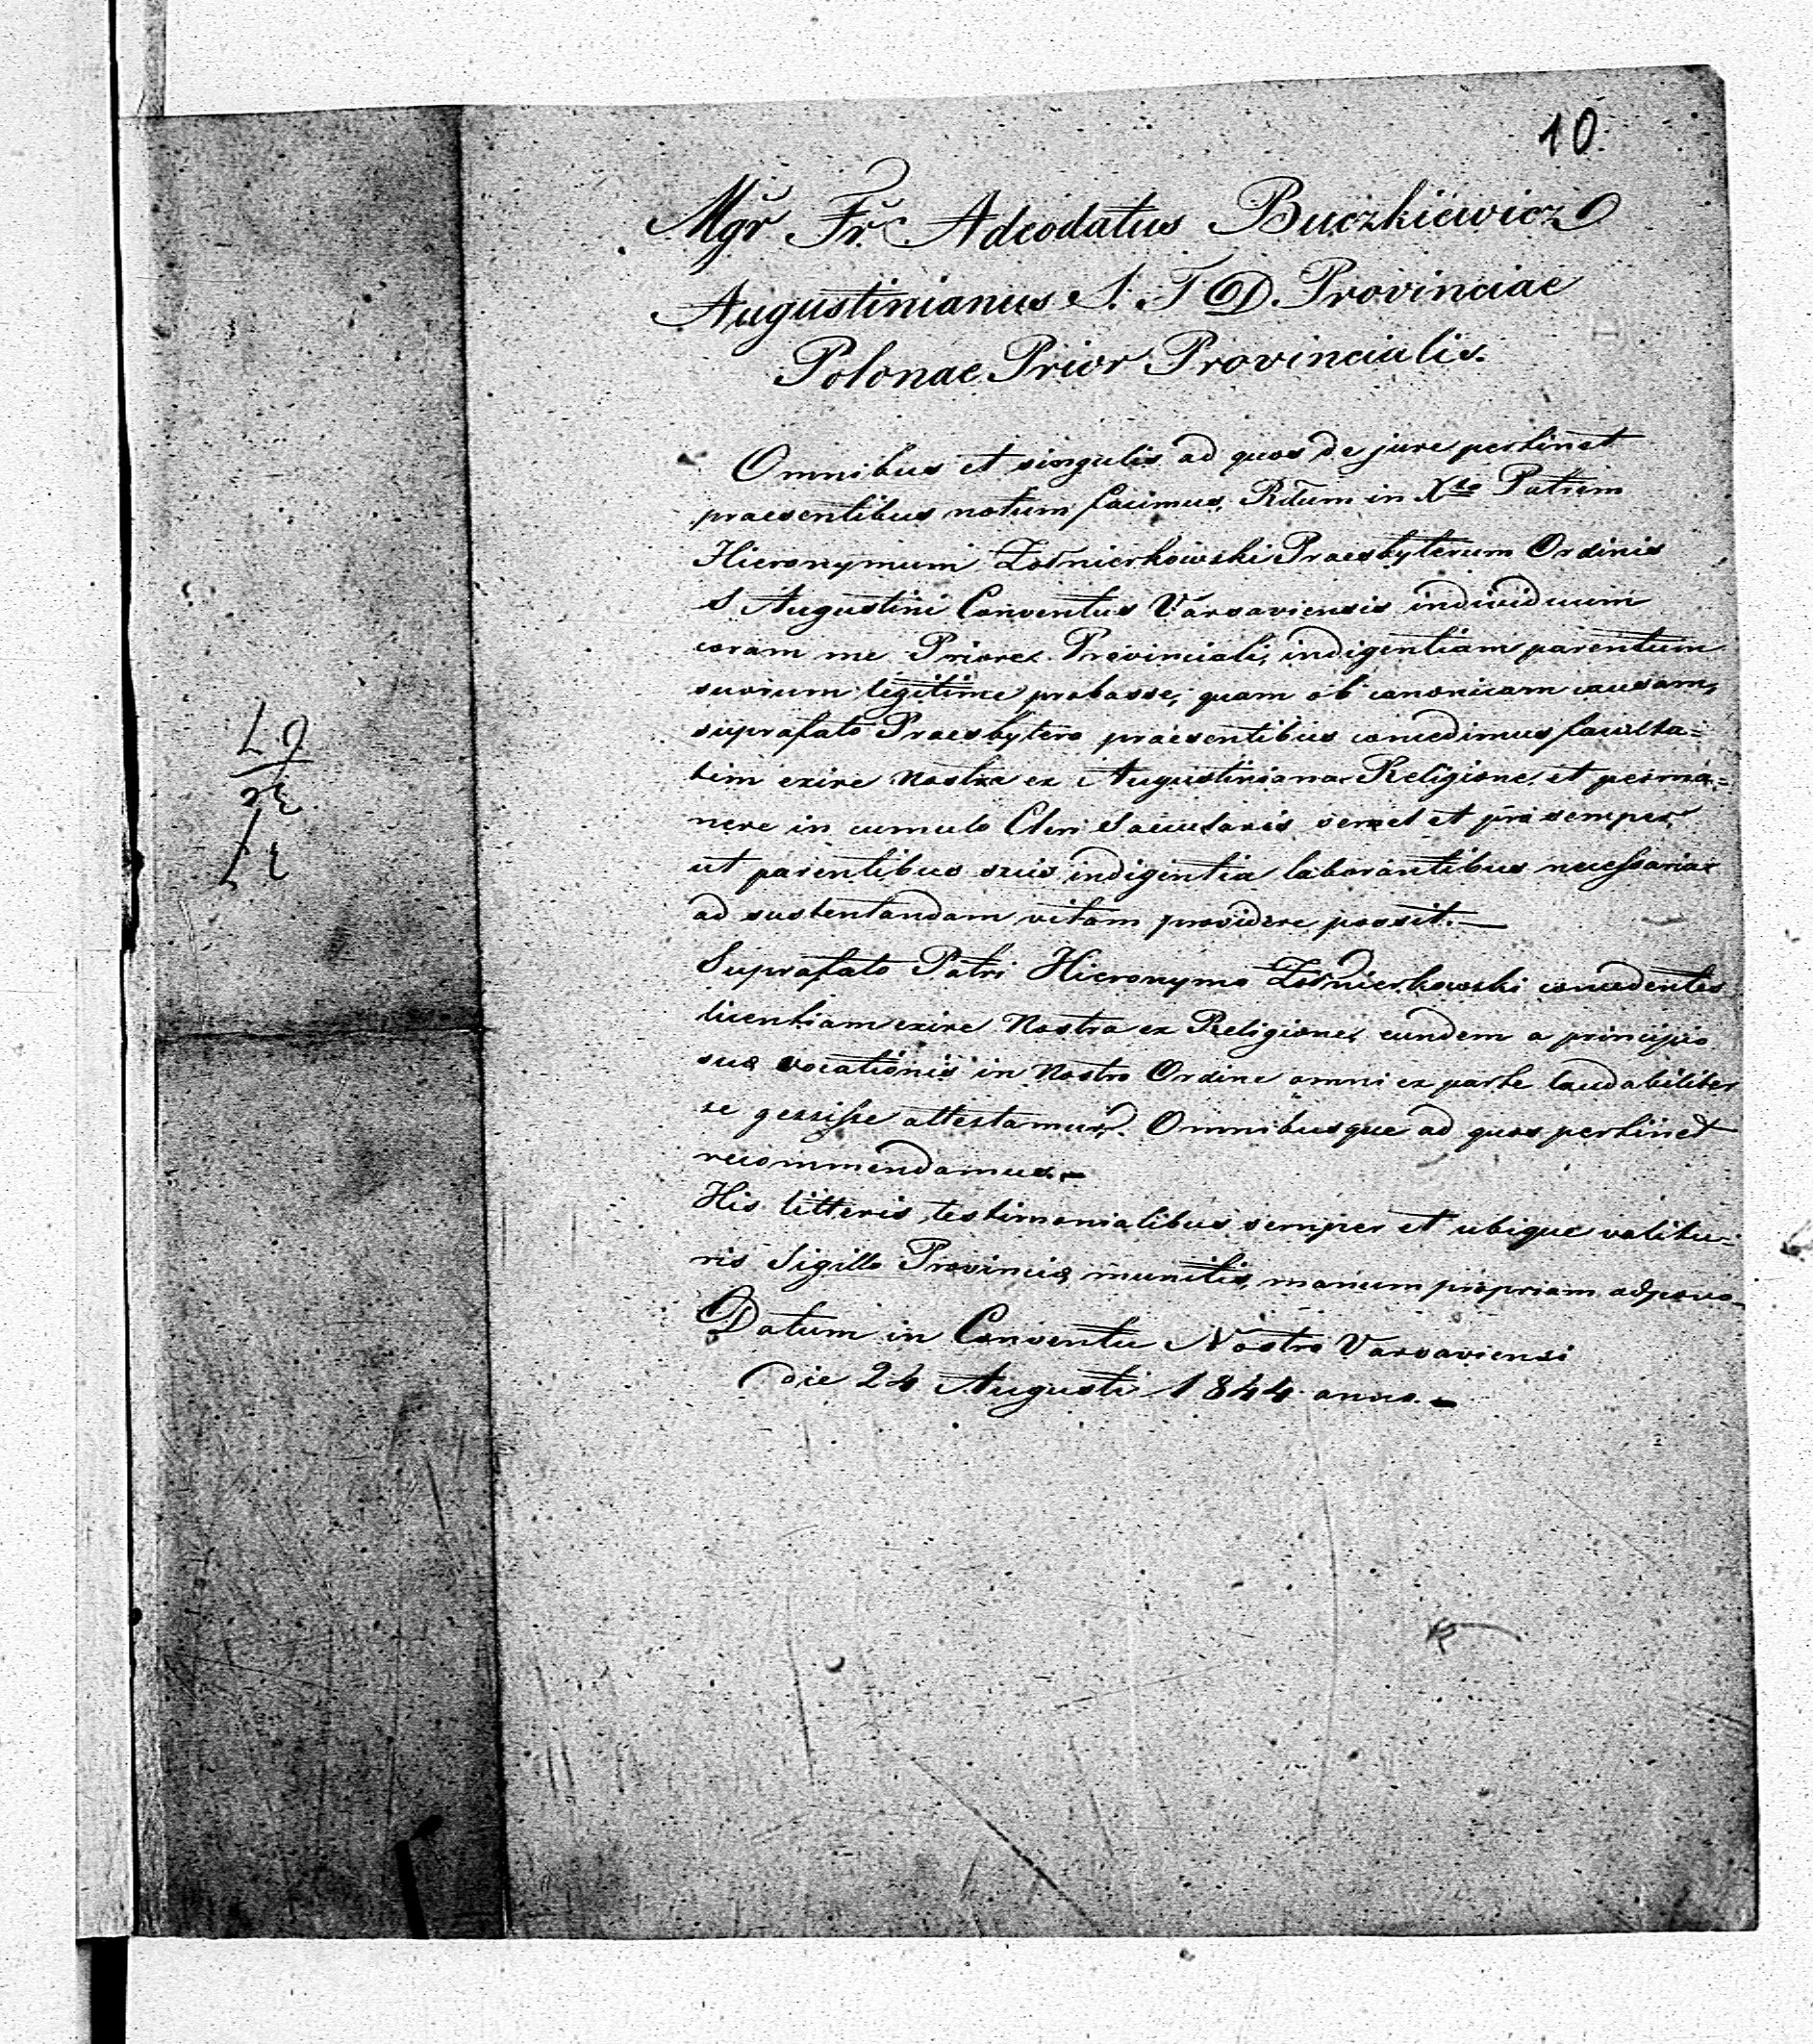 10.
Mgr Fr. Adeodatus Buczkiewicz
Augustinianus S. T. D. Provinciae
Polonae Prior Provincialis.
Omnibus et singulis ad quos de jure pertinet
praesentibus notum facimus, Rdum in Xto Patrem
Hieronymum Żołnierkowski Praesbyterum Ordinis
S Augustini Conventus Varsaviensis individuum
coram me Priore Provinciali, indigentiam parentum
suorum legitime probasse, quam ob canonicam causam,
suprafato Praesbytero praesentibus concedimus faculta=
tem exire nostra ex Augustiniana Religione et perma=
nere in cumulo Cleri Saecularis semel et pro semper,
ut parentibus suis indigentia laborantibus necessaria
ad sustentandam vitam providere possit.—
Suprafato Patri Hieronymo Żołnierkowski concedentes
licentiam exire Nostra ex Religione, eundem a principio
suae vocationis in Nostro Ordine omni ex parte laudabiliter
se gessisse attestamur. Omnibusque ad quos pertinet
recommendamus.—
His litteris testimonialibus semper et ubique valitu=
ris Sigillo Provinciae munitis, manum propriam adpono
Datum in Conventu Nostro Varsaviensi
die 24 Augusti 1844 anno.—